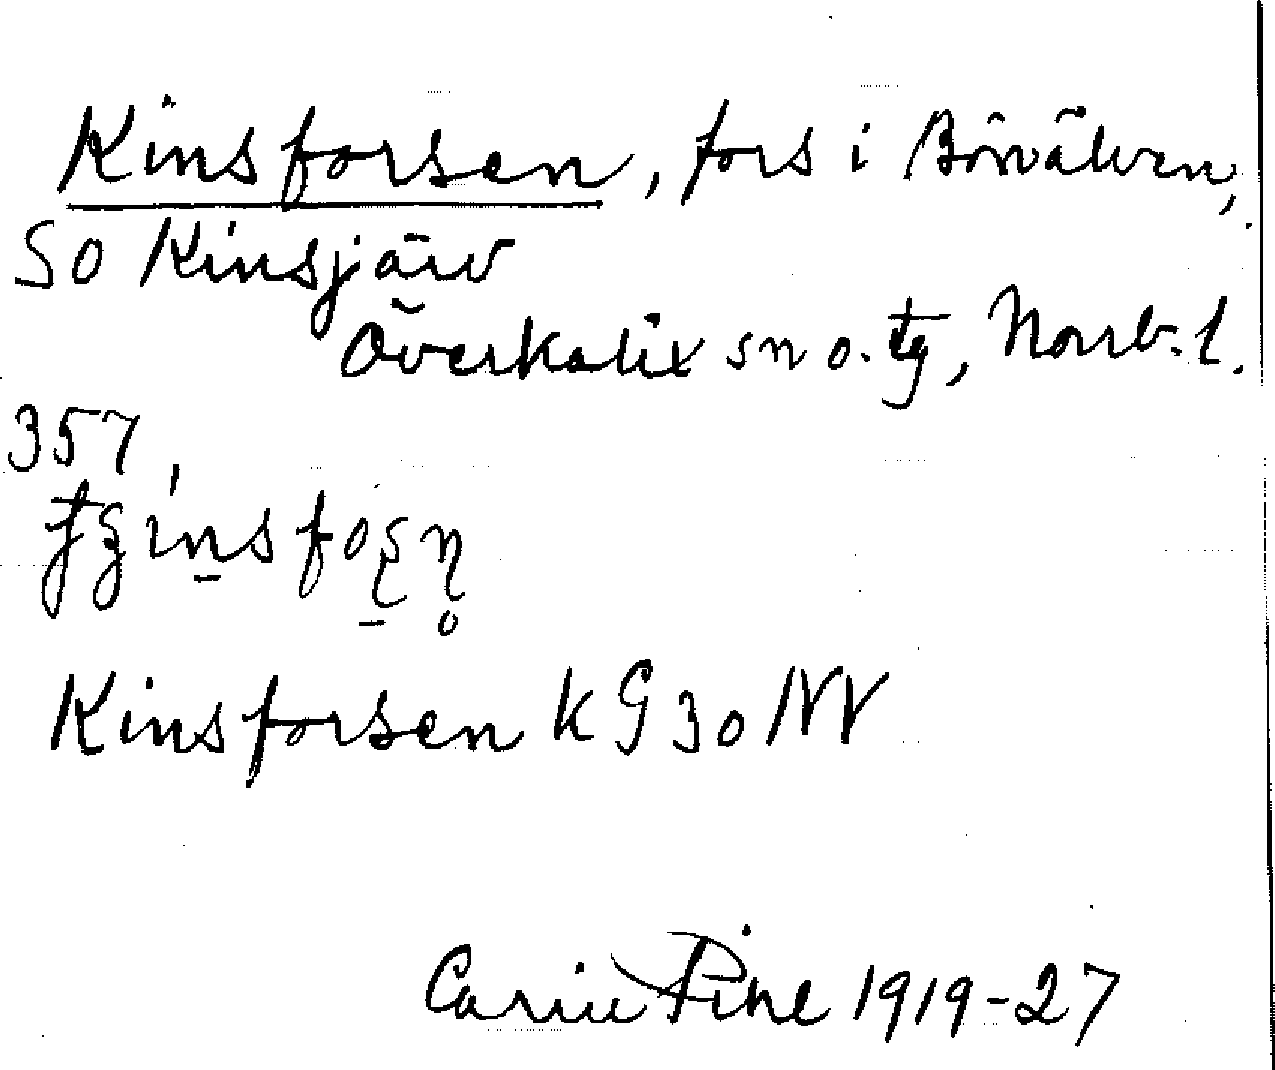 Kinsforsen, fors i Börälven,
SO Kinsjärv
Överkalix sn o. tg, Norrb. l.
357
Kinsforsen k G 30 NV
Carin Pihl 1919-27